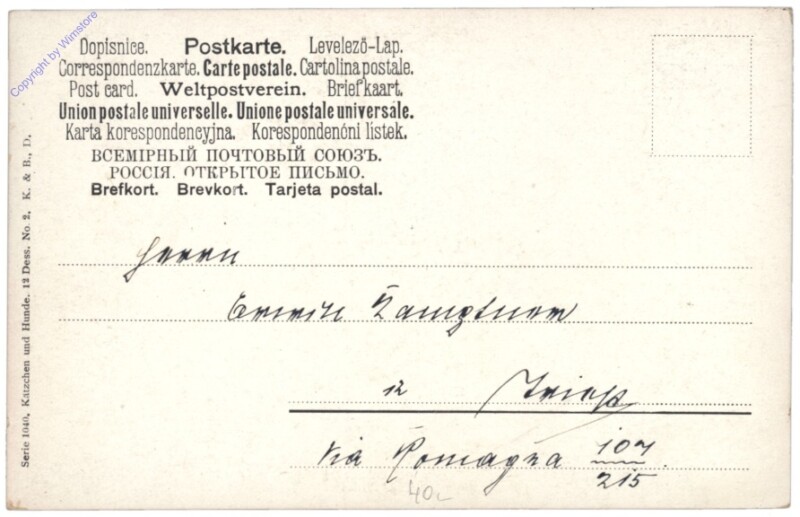 Copyright by Wimstore
Dopisnice. Postkarte. Levelező-Lap.
Correspondenzkarte. Carte postale. Cartolina postale.
Post card. Weltpostverein. Briefkaart.
Union postale universelle. Unione postale universale.
Karta korespondencyjna. Korespondenční lístek.
ВСЕМІРНЫЙ ПОЧТОВЫЙ СОЮЗЪ.
РОССІЯ. ОТКРЫТОЕ ПИСЬМО.
Brefkort. Brevkort. Tarjeta postal.
Serie 1040, Kätzchen und Hunde. 12 Dess. No. 2. K. & B., D.
Herrn
Erwin
Triest
Via Romagna 107
215
40.-